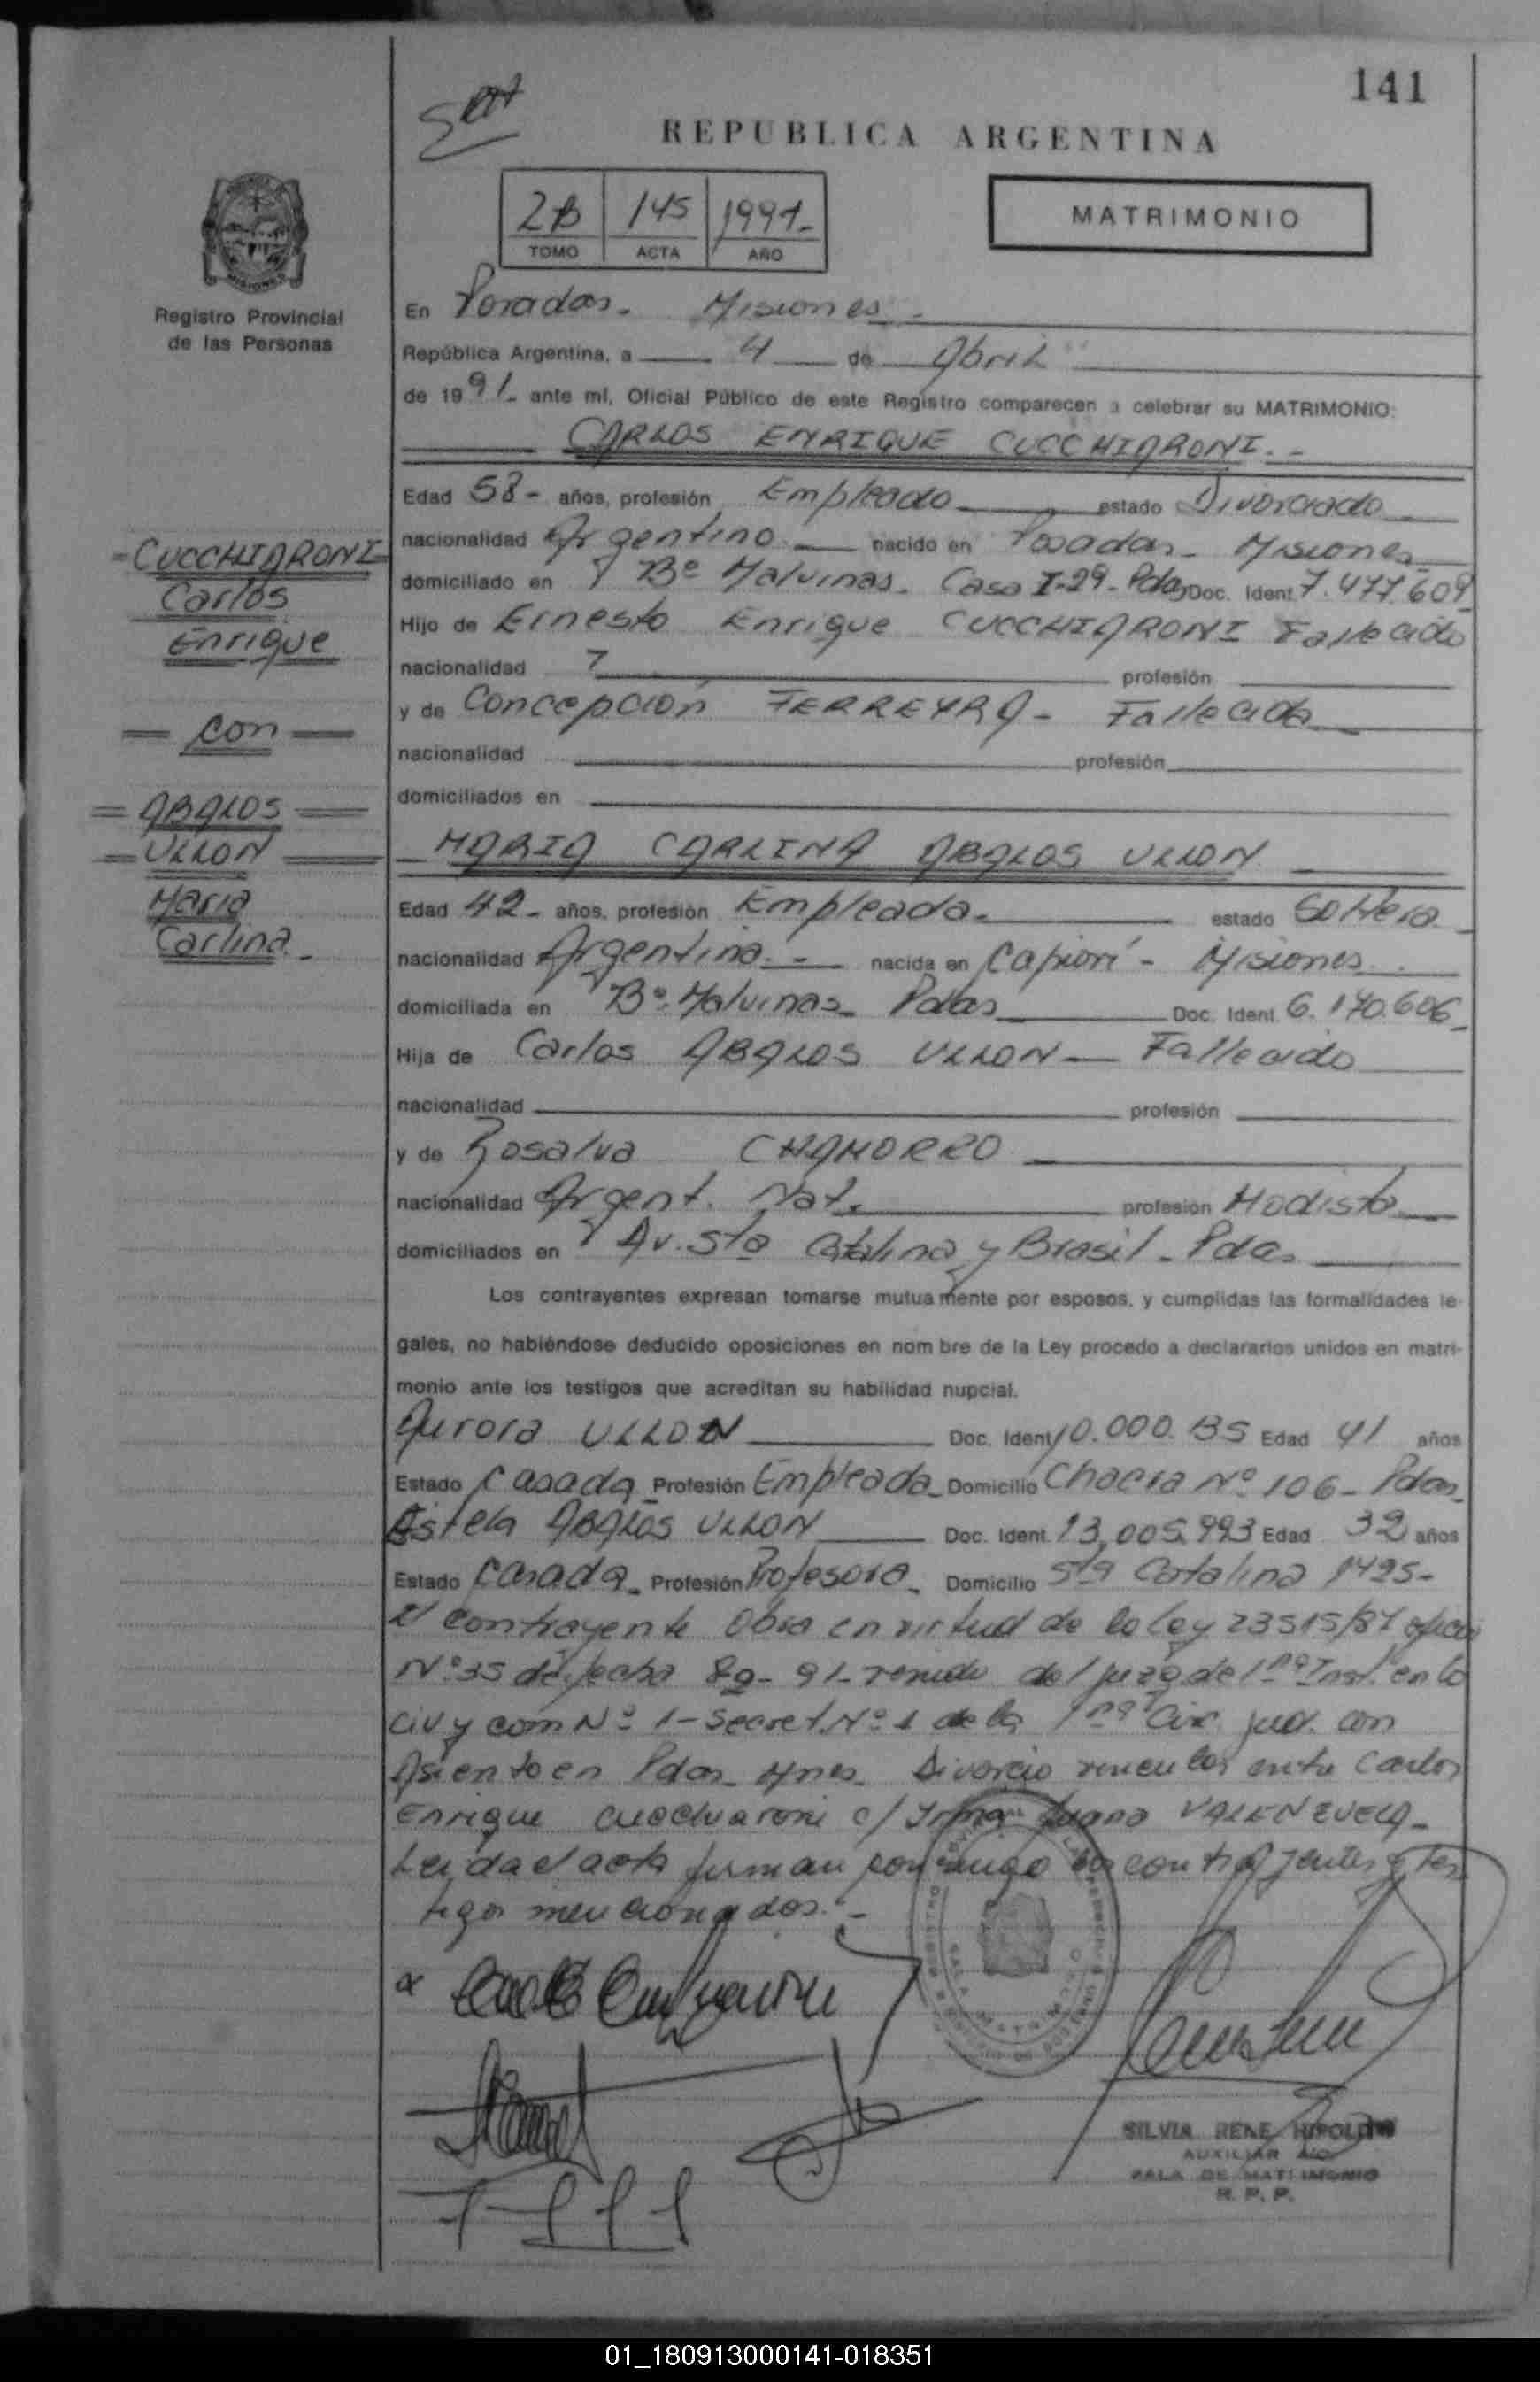 141
REPUBLICA ARGENTINA
2B 145 1991-
TOMO ACTA AÑO
MATRIMONIO
Registro Provincial
de las Personas
En Posadas - Misiones -
República Argentina, a 4 de Abril
de 1991- ante mí, Oficial Público de este Registro comparecen a celebrar su MATRIMONIO:
CARLOS ENRIQUE CUCCHIARONI.-
Edad 58- años, profesión Empleado estado Divorciado
nacionalidad Argentino nacido en Posadas - Misiones
domiciliado en Bº Malvinas - Casa I-29- Pdas Doc. Ident. 7.477.609
Hijo de Ernesto Enrique CUCCHIARONI Fallecido
nacionalidad profesión
y de Concepción FERREYRA - Fallecida
nacionalidad profesión
domiciliados en
MARIA CARLINA ABALOS ULLON
Edad 42- años, profesión Empleada- estado Soltera
nacionalidad Argentina.- nacida en Capioví - Misiones.
domiciliada en Bº Malvinas- Pdas Doc. Ident. 6.170.606
Hija de Carlos ABALOS ULLON - Fallecido
nacionalidad profesión
y de Rosalva CHAMORRO
nacionalidad Argent. Nat. profesión Modista
domiciliados en Av. Sta Catalina y Brasil - Pdas
Los contrayentes expresan tomarse mutuamente por esposos, y cumplidas las formalidades le-
gales, no habiéndose deducido oposiciones en nombre de la Ley procedo a declararlos unidos en matri-
monio ante los testigos que acreditan su habilidad nupcial.
Aurora ULLON Doc. Ident. 10.000.135 Edad 41 años
Estado Casada Profesión Empleada- Domicilio Chacra Nº 106- Pdas
Estela ABALOS ULLON Doc. Ident. 13,005.993 Edad 32 años
Estado Casada- Profesión Profesora- Domicilio Sta Catalina 1495-
El contrayente Obra en virtud de la ley 23515/87 oficio
Nº 35 de fecha 91- del juzg de 1ra Inst. en lo
Civ y com Nº 1- Secret. Nº 1 de la 1ra Circ. jud. con
Asiento en Pdas- Mnes- Divorcio vincular entre Carlos
Enrique Cucchiaroni c/ Irma Juana VALENZUELA-
Leida el acta firman conmigo los contrayentes y tes
tigos mencionados.-
CUCCHIARONI
Carlos
Enrique
con
ABALOS
ULLON
Maria
Carlina.-
SILVIA RENE HIPOLITO
AUXILIAR
SALA DE MATRIMONIO
R. P. P.
01_180913000141-018351